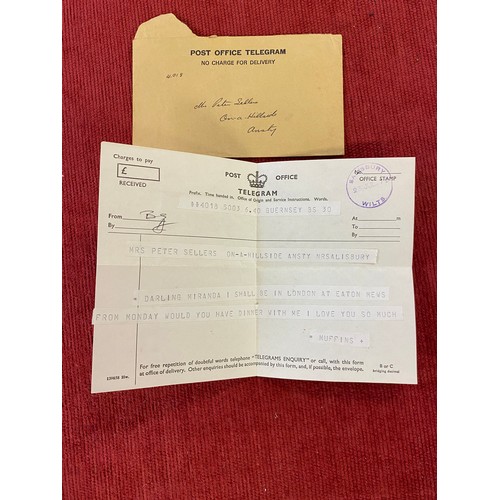 POST OFFICE TELEGRAM
NO CHARGE FOR DELIVERY
Mrs Peter Sellers
Ansty
Charges to pay
£
RECEIVED
POST OFFICE
TELEGRAM
Prefix. Time handed in. Office of Origin and Service Instructions. Words.
No.
OFFICE STAMP
SALISBURY
WILTS
6.40 GUERNSEY BG 30
From
By
At m
To
By
MRS PETER SELLERS ON-A-HILLSIDE ANSTY NRSALISBURY
* DARLING MIRANDA I SHALL BE IN LONDON AT EATON MEWS
FROM MONDAY WOULD YOU HAVE DINNER WITH ME I LOVE YOU SO MUCH
* MUFFINS *
For free repetition of doubtful words telephone "TELEGRAMS ENQUIRY" or call, with this form
at office of delivery. Other enquiries should be accompanied by this form, and, if possible, the envelope.
B or C